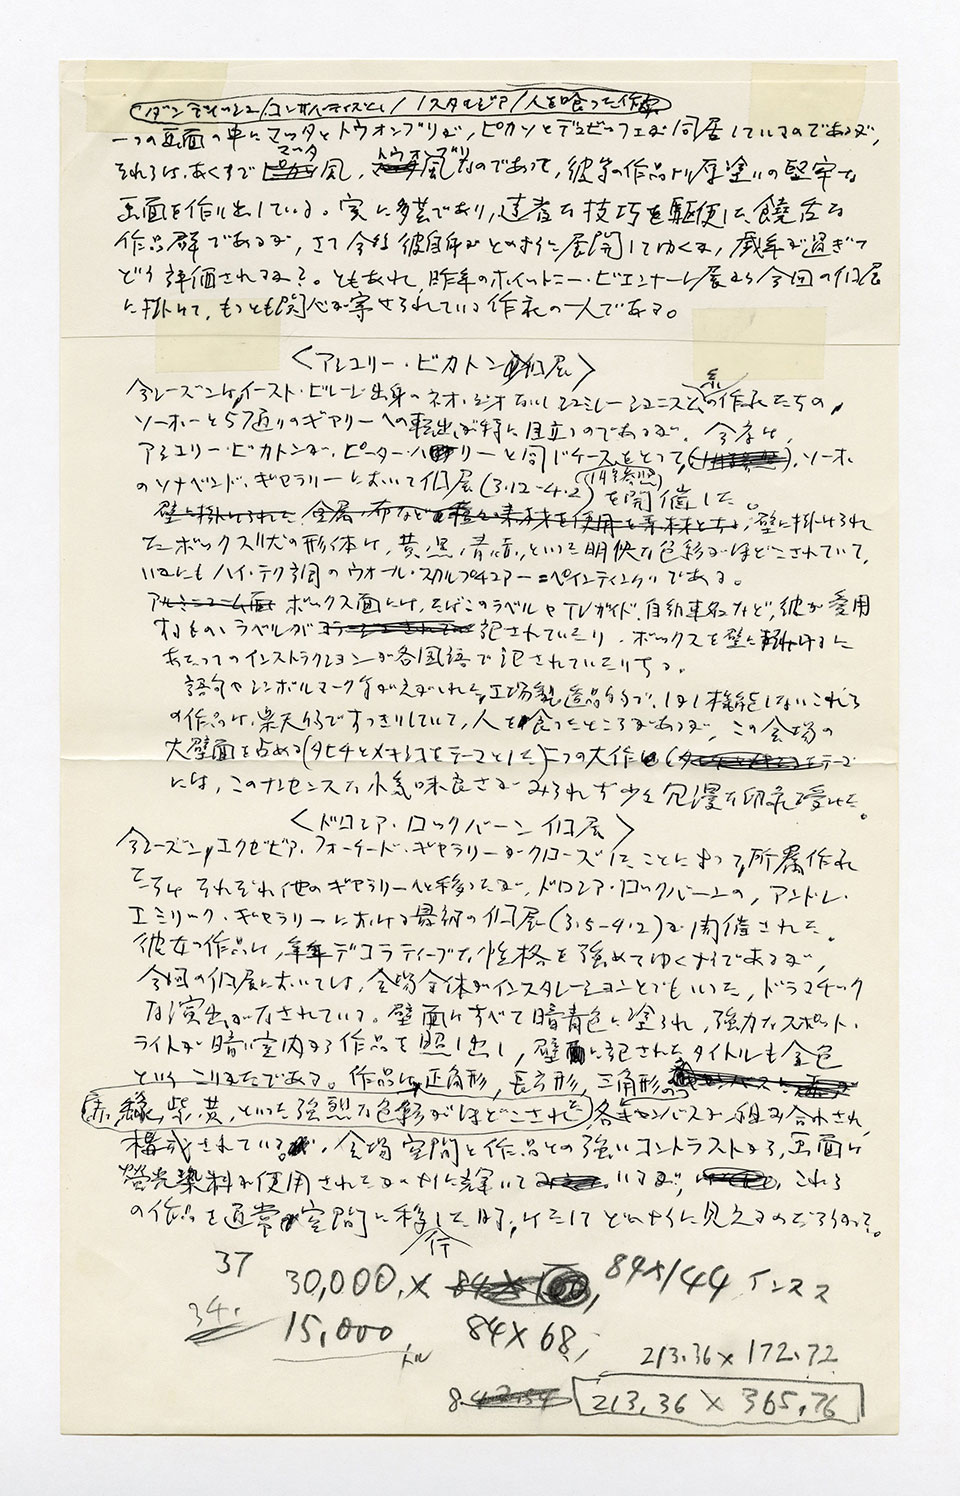 一つの画面の中にマッタとトウォンブリが,ピカソとデュビュッフェが同居しているのであるが,
マッタ トウォンブリ
それらは,あくまで 風, 風なのであって,彼等の作品より厚塗りの堅牢な
画面を作り出している。実に多芸であり,達者な技巧を駆使した饒舌な
作品群であるが,さて今後彼自身がどのように展開してゆくか,歳年が過ぎて
どう評価されるか?。ともあれ,昨年のホイットニー・ビエンナーレ展から今回の個展
に掛けて,もっとも関心が寄せられている作家の一人である。
〈アシュリー・ビカトン個展〉
系
今シーズンは,イースト・ビレージ出身のネオ・ジオないしシミュレーショニズム の作家たちの,
ソーホーと57通りのギャラリーへの転出が特に目立つのであるが,今度は,
アシュリー・ビカトンが,ピーター・ハリーと同じケースをとって, ソーホー
のソナベンド・ギャラリーにおいて個展(3.12-4.2) を開催した。
(1月号参照)
壁に掛けられ
たボックス状の形体は,黄,黒,青,赤,といった明快な色彩がほどこされていて,
いかにもハイ・テク調のウォール・スカルプチュアー=ペインティングである。
ボックス面には,たばこのラベルやTVガイド,自動車名など,彼が愛用
するもの,ラベルが 記されていたり,ボックスを壁に掛けるに
あたってのインストラクションが各国語で記されていたりする。
語句やシンボルマーク等がえがかれた,工場製造品的で,しかし機能をしないこれら
の作品は,楽天的ですっきりしていて,人を喰ったところがあるが,この会場の
大壁面を占める(タヒチとメキシコをテーマとした)二つの大作
には,このナンセンスな小気味良さがみられず少々冗漫な印象を受けた。
〈ドロシア・ロックバーン個展〉
今シーズン,エクゼビア・フォーケード・ギャラリーがクローズしたことによって,所属作家
たちは それぞれ他のギャラリーへと移ったが,ドロシア・ロックバーンの,アンドレ・
エミリック・ギャラリーにおける最初の個展(3.5-4.2)が開催された。
彼女の作品は,年年デコラティーブな性格を強めてゆくようであるが,
今回の個展においては,会場全体がインスタレーションとでもいった,ドラマチック
な演出がなされている。壁面はすべて暗青色に塗られ,強力なスポット・
ライトが暗い室内から作品を照し出し,壁面に記されたタイトルも金色
というこりようである。作品は,正角形,長方形,三角形の
(赤,緑,紫,黄,といった強烈な色彩がほどこされた)各キャンバスが組み合わされ,
構成されているが,会場空間と作品との強いコントラストから,画面は
螢光染料を使用されたかのように輝いて いるが, これら
の作品を通常 空間に移した時,はたしてどのように見えるのだろうか?。
37
30,000.× 84×144 インスス
34.
15,000 84×68,
ドル
213.36×172.72
213.36×365.76